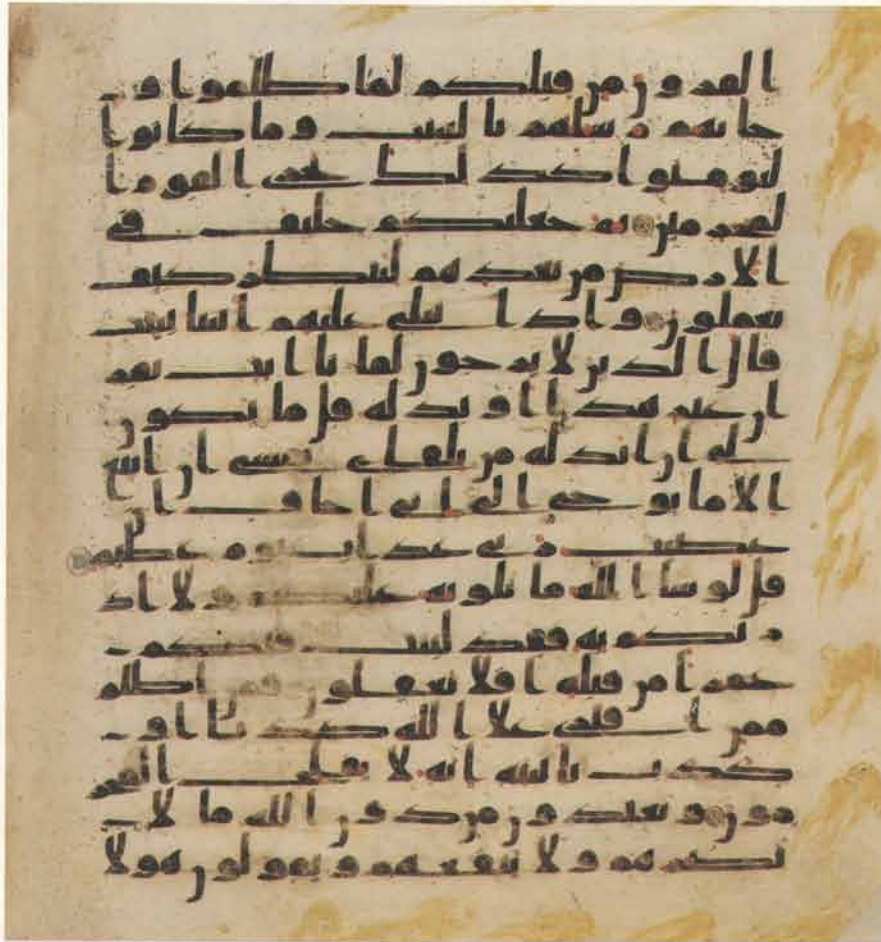 القرون من قبلكم لما ظلموا و
جاتهم رسلهم بالبينت وما كانوا
ليومنوا كذلك نجزى القوم ا
لمجرمين ثم جعلنكم خليف فى
الارض من بعدهم لننظر كيف
تعملون واذا تتلى عليهم اياتنا بينت
قال الذين لا يرجون لقانا ايت بقر
ان غير هذا او بدله قل ما يكون
لى ان ابدله من تلقاى نفسى ان اتبع
الا ما يوحى الى انى اخاف ان
عصيت ربى عذاب يوم عظيم
قل لو شا الله ما تلوته عليكم ولا اد
ريكم به فقد لبثت فيكم
عمرا من قبله افلا تعقلون فمن اظلم
ممن افترى علا الله كذبا او
كذب باييته انه لا يفلح المجر
مون ويعبدون من دون الله ما لا
يضرهم ولا ينفعهم ويقولون هولا